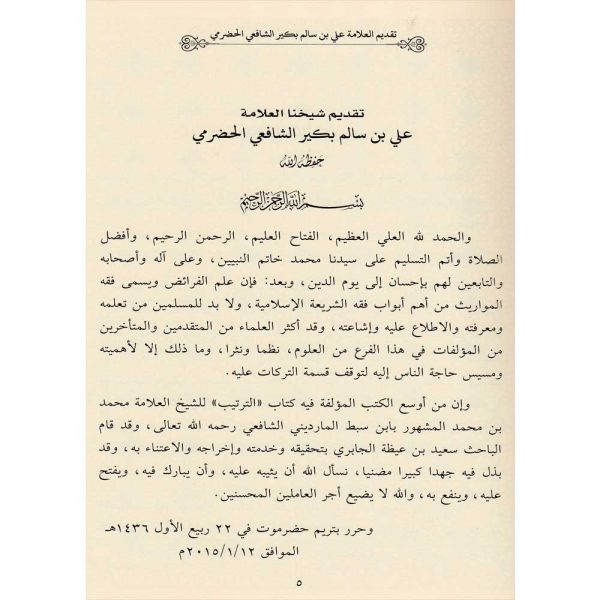 تقديم العلامة علي بن سالم بكير الشافعي الحضرمي
تقديم شيخنا العلامة
علي بن سالم بكير الشافعي الحضرمي
حفظه الله
بسم الله الرحمن الرحيم
والحمد لله العلي العظيم، الفتاح العليم، الرحمن الرحيم، وأفضل
الصلاة وأتم التسليم على سيدنا محمد خاتم النبيين، وعلى آله وأصحابه
والتابعين لهم بإحسان إلى يوم الدين، وبعد: فإن علم الفرائض ويسمى فقه
المواريث من أهم أبواب فقه الشريعة الإسلامية، ولا بد للمسلمين من تعلمه
ومعرفته والاطلاع عليه وإشاعته، وقد أكثر العلماء من المتقدمين والمتأخرين
من المؤلفات في هذا الفرع من العلوم، نظما ونثرا، وما ذلك إلا لأهميته
ومسيس حاجة الناس إليه لتوقف قسمة التركات عليه.
وإن من أوسع الكتب المؤلفة فيه كتاب «الترتيب» للشيخ العلامة محمد
بن محمد المشهور بابن سبط المارديني الشافعي رحمه الله تعالى، وقد قام
الباحث سعيد بن عيظة الجابري بتحقيقه وخدمته وإخراجه والاعتناء به، وقد
بذل فيه جهدا كبيرا مضنيا، نسأل الله أن يثيبه عليه، وأن يبارك فيه، ويفتح
عليه، وينفع به، والله لا يضيع أجر العاملين المحسنين.
وحرر بتريم حضرموت في ٢٢ ربيع الأول ١٤٣٦هـ
الموافق ٢٠١٥/١/١٢م
٥